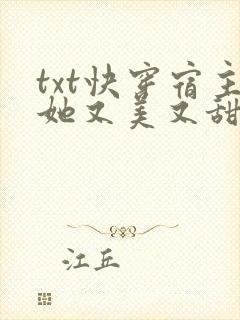 txt快穿宿主
她又美又甜
江丘